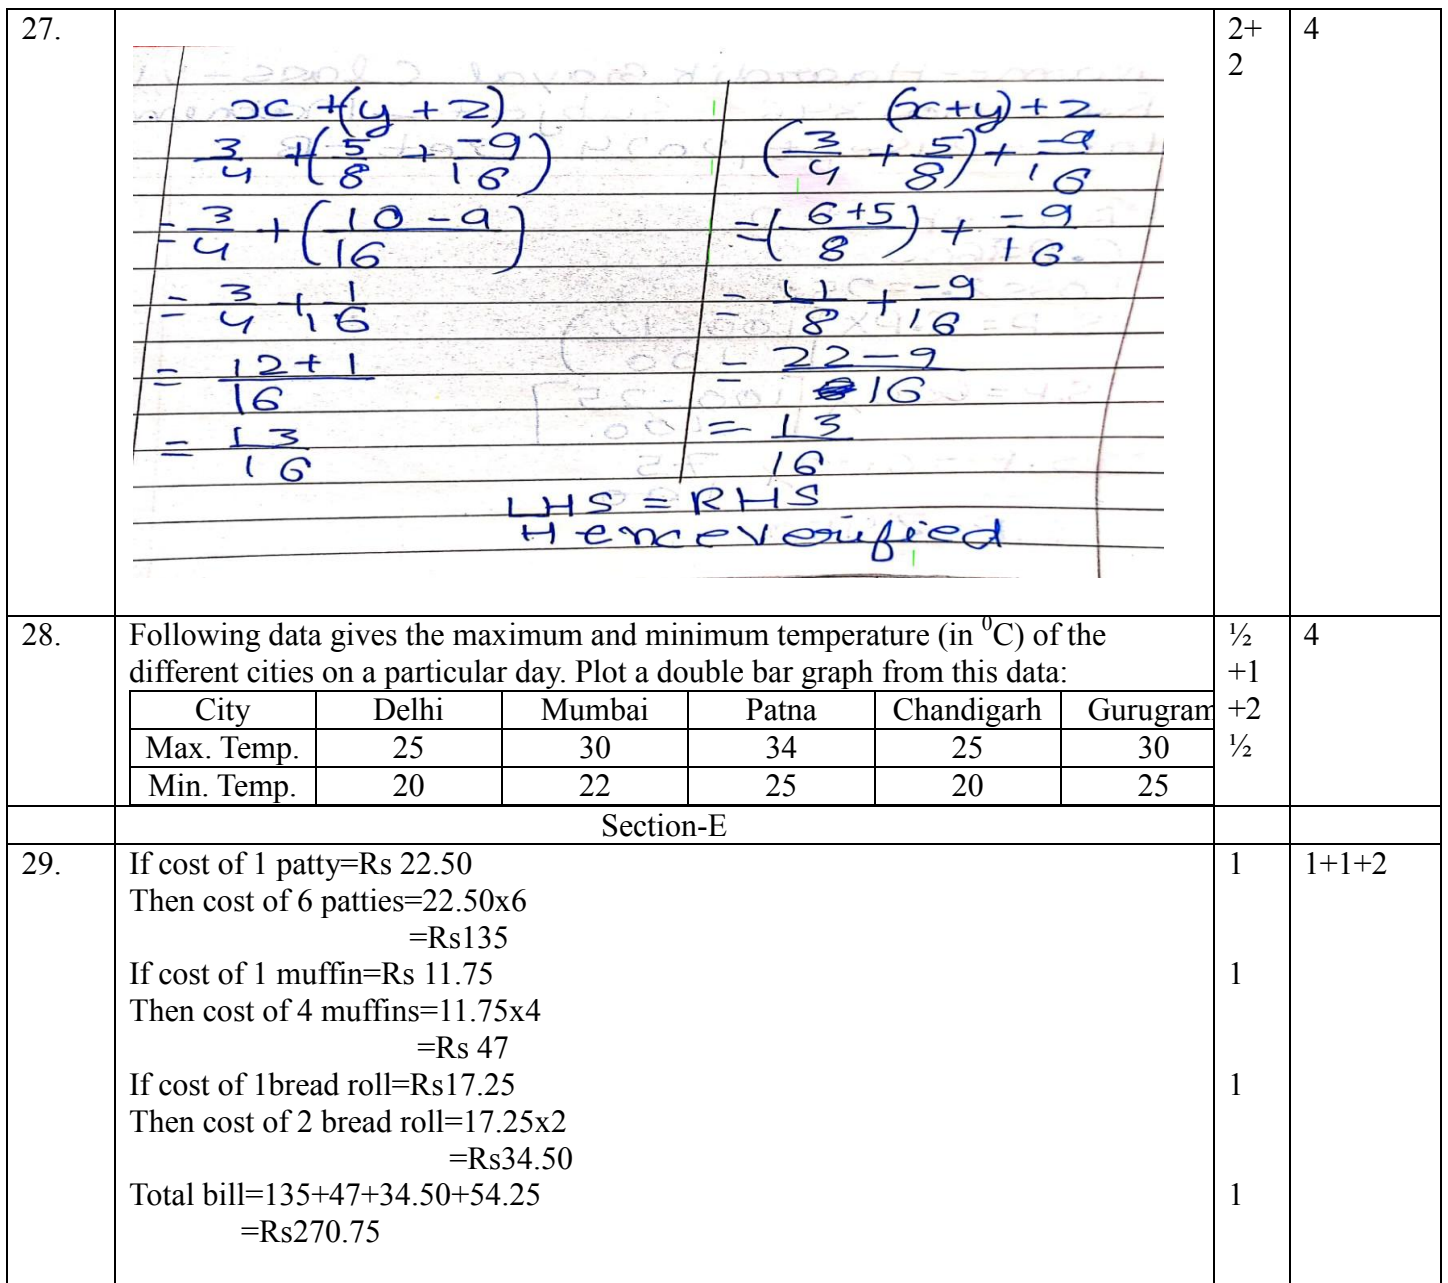 27.
2+
2
4
x + (y + z)
(x+y) + z
3/4 + (5/8 + -9/16)
(3/4 + 5/8) + -9/16
= 3/4 + (10 - 9/16)
= (6+5/8) + -9/16
= 3/4 + 1/16
= 11/8 + -9/16
= 12+1/16
= 22-9/16
= 13/16
= 13/16
LHS = RHS
Hence Verified
28.
Following data gives the maximum and minimum temperature (in ⁰C) of the
different cities on a particular day. Plot a double bar graph from this data:
City Delhi Mumbai Patna Chandigarh Gurugram
Max. Temp. 25 30 34 25 30
Min. Temp. 20 22 25 20 25
½
+1
+2
½
4
Section-E
29.
If cost of 1 patty=Rs 22.50
Then cost of 6 patties=22.50x6
=Rs135
If cost of 1 muffin=Rs 11.75
Then cost of 4 muffins=11.75x4
=Rs 47
If cost of 1bread roll=Rs17.25
Then cost of 2 bread roll=17.25x2
=Rs34.50
Total bill=135+47+34.50+54.25
=Rs270.75
1
1
1
1
1+1+2